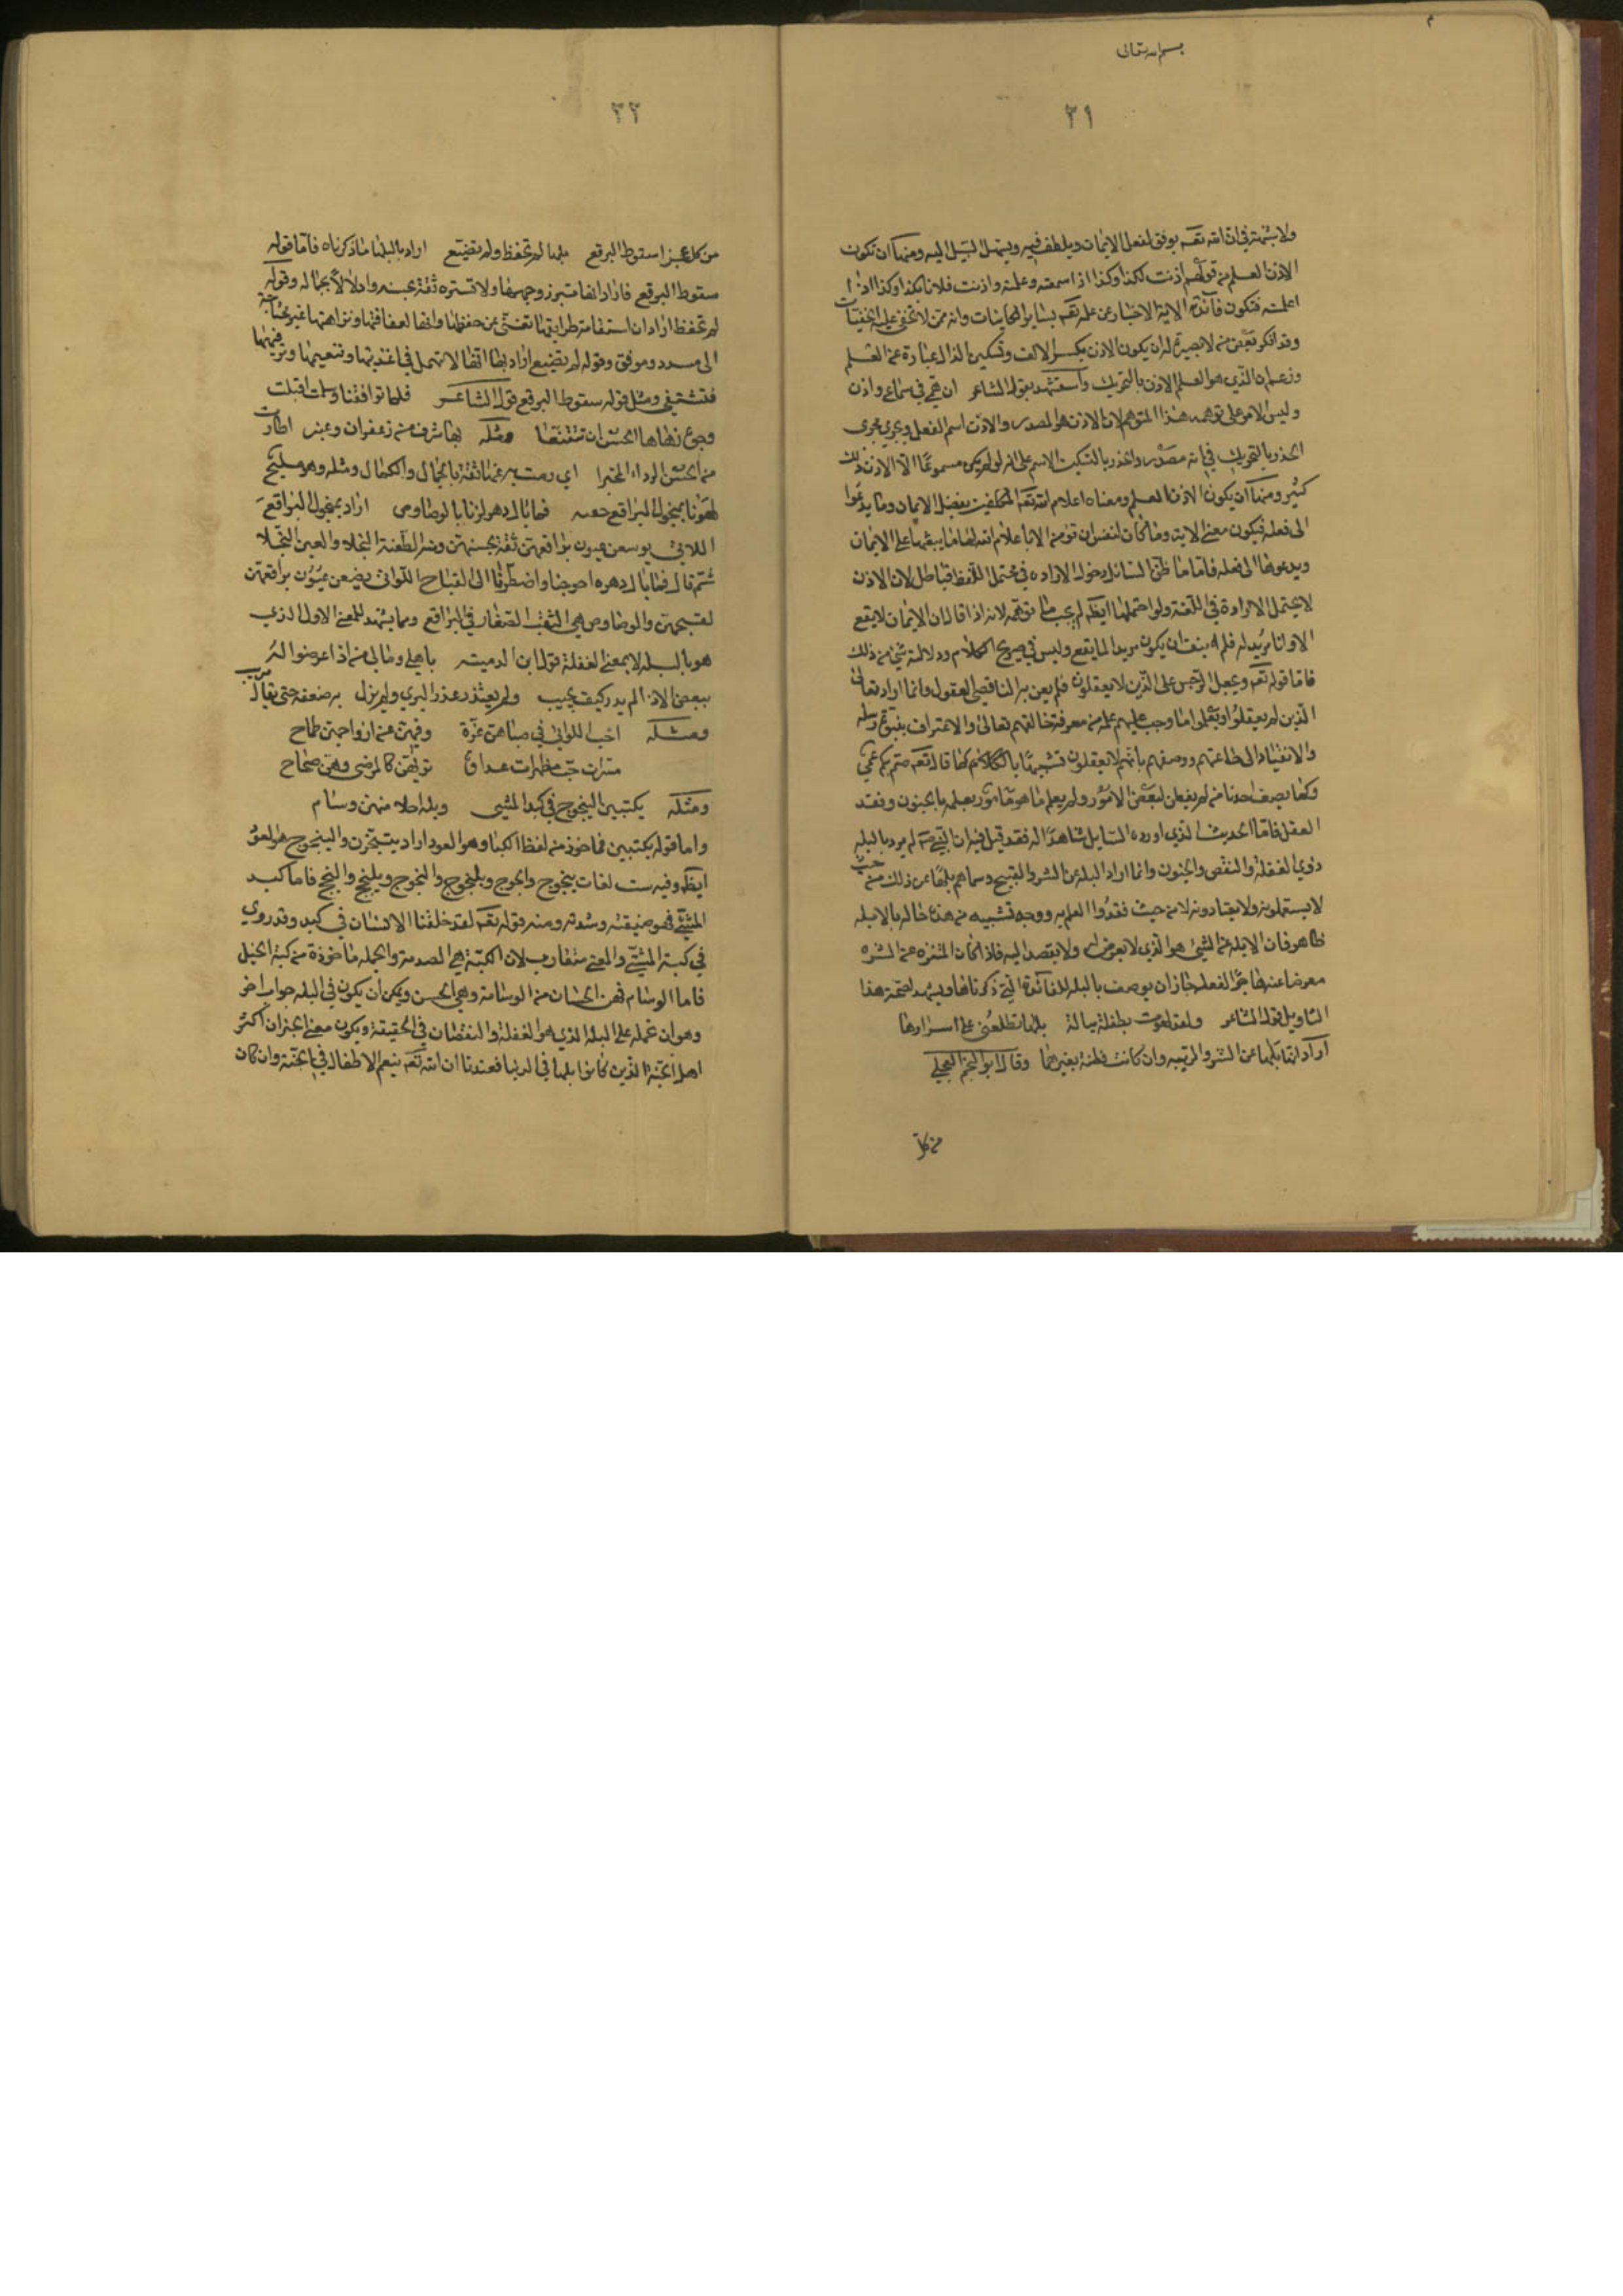 بسم الله تعالى
٣١
ولا شبهة في ان الله تعه يوفق لفعل الايمان ويلطف فيه ويسهل السبيل اليه ومنها ان تكون
الاذن العلم من قولهم اذنت لكذا وكذا اذا سمعته وعلمته واذنت فلانا بكذا وكذا اذا
اعلمته فتكون فائدة الاية الاخبار عن علمه تعه بسائر الكاينات وانه ممن لا تخفى عليه الخفيات
وقد انكر بعض من لا بصيرة له ان يكون الاذن بكسر الالف وتسكين الذال عبارة عن العلم
وزعم ان الذي هو العلم الاذن بالتحريك واستشهد بقول الشاعر ان همي في سماع واذن
وليس الامر على توهمه هذا المتوهم لان الاذن هو المصدر والاذن اسم الفعل ويجري مجرى
الحذر بالتحريك في انه مصدر والحذر بالتسكين الاسم على انه لو لم يكن مسموعا الا الاذن
كثير ومنها ان يكون الاذن العلم ومعناه اعلام الله تعه المكلفين بفضل الايمان وما يدعوا
الى فعله فيكون معنى الاية وما كان لنفس ان تؤمن الا باعلام الله لها ما يبعثها على الايمان
ويدعوها الى فعله فاما ما ظن السائل دخول الارادة في محتمل اللفظ فباطل لان الاذن
لا يحتمل الارادة في اللغة ولو احتملها ايظه لم يجب ما توهمه لانه اذا قال ان الايمان لا يقع
الا وانا مريد له فلم ينف ان يكون مريدا لما يقع وليس في صريح الكلام ودلالته شيء من ذلك
فاما قوله تعه ويجعل الرجس على الذين لا يعقلون فلم يعن به الناقصي العقول وانما اراد تعالى
الذين لم يعقلوا ويعلموا ما وجب عليهم علمه من معرفة خالقهم تعالى والاعتراف بنبوة رسله
والانقياد الى طاعتهم ووصفهم بانهم لا يعقلون تشبيها كما قال تعه صم بكم عمي
وكما يصف احدنا من لم يفطن لبعض الامور ولم يعلم ما هو مأمور بعلمه بالجنون وفقد
العقل فاما الحديث الذي اورده السايل شاهدا له فقد قيل فيه ان النبي صه لم يرد بالبله
ذوي الغفلة والنقص والجنون وانما اراد البله عن الشر والقبيح وسماهم بلها عن ذلك من حيث
لا يستعملونه ولا يعتادونه لا من حيث فقدوا العلم به ووجه تشبيه من هذه حاله بالابله
ظاهر فان الابله عن الشيء هو الذي لا يعرض له ولا يقصد اليه فاذا كان المتنزه عن الشر
معرضا عنه هاجرا لفعله جاز ان يوصف بالبله للفائدة التي ذكرناها ويشهد لصحة هذا
التاويل قول الشاعر ولقد لهوت بطفلة ميالة بلهاء تطلعني على اسرارها
اراد انها بلهاء عن الشر والريبة وان كانت فطنة بغيرهما وقال ابو النجم العجلي
من كل
٣٢
من كل عجزاء سقوط البرقع بلهاء لم تحفظ ولم تضيع اراد بالبلهاء ما ذكرناه فاما قوله
سقوط البرقع فاراد انها تبرز وجهها ولا تستره ثقة بحسنه وادلالا بجماله وقوله
لم تحفظ اراد ان استقامة طرايقها تغني عن حفظها وانها لعفافها ونزاهتها غير محتاجة
الى مسدد وموفق وقوله لم تضيع اراد بها انها لا تهمل في اغذيتها وتنعيمها وترفيهها
فتشقى ومثل قوله سقوط البرقع قول الشاعر فلما تواقفنا وسلمت اقبلت
وجوه زهاها الحسن ان تتقنعا ومثله بها شرف من زعفران وعنبر اطارت
من الحسن الرداء المحبرا اي رمت به عنها ثقة بالجمال والكمال ومثله وهو مليح
لهونا بمنجول البراقع حقبة فما بال دهر لزنا بالوصاوص اراد بمنجول البراقع
اللاتي يوسعن عيون براقعهن ثقة بحسنهن ومنه الطعنة النجلاء والعين النجلاء
ثم قال فما بال دهر احوجنا واضطرنا الى القباح اللواتي يضيقن عيون براقعهن
لقبحهن والوصاوص هي الثقب الصغار في البراقع ومما يشهد للمعنى الاول الذي
هو البله لا بمعنى الغفلة قول ابن الدمينه باهلي ومالي من اذا عرضوا له
ببعض الاذى لم يدر كيف يجيب ولم يعتذر عذر البري ولم يزل به ضعفة حتى يقال مريب
ومثله احب اللواتي في صباهن غرة وفيهن عن ازواجهن طماح
مسرات حب مظهرات عداوة تريهن كالمرضى وهن صحاح
ومثله يكتبين الينجوج في كبد المشتى وبله احلامهن وسام
واما قوله يكتبين فماخوذ من لفظ الكباء وهو العود اراد يتبخرن والينجوج هو العود
ايظه وفيه ست لغات ينجوج وانجوج ويلنجوج والنجوج ويلنجج والنجج فاما كبد
المشتى فهو ضيقته وشدته ومنه قوله تعه لقد خلقنا الانسان في كبد وقد روي
في كبة المشتى والمعنى متقارب لان الكبة هي الصدمة والحمله ماخوذة من كبة الخيل
فاما الوسام فهن الحسان من الوسامة وهي الحسن ويمكن ان يكون في البله جواب اخر
وهو ان نحمله على البله الذي هو الغفلة والنقصان في الحقيقة ويكون معنى الخبر ان اكثر
اهل الجنة الذين كانوا بلها في الدنيا فعندنا ان الله تعه ينعم الاطفال في الجنة وان كان